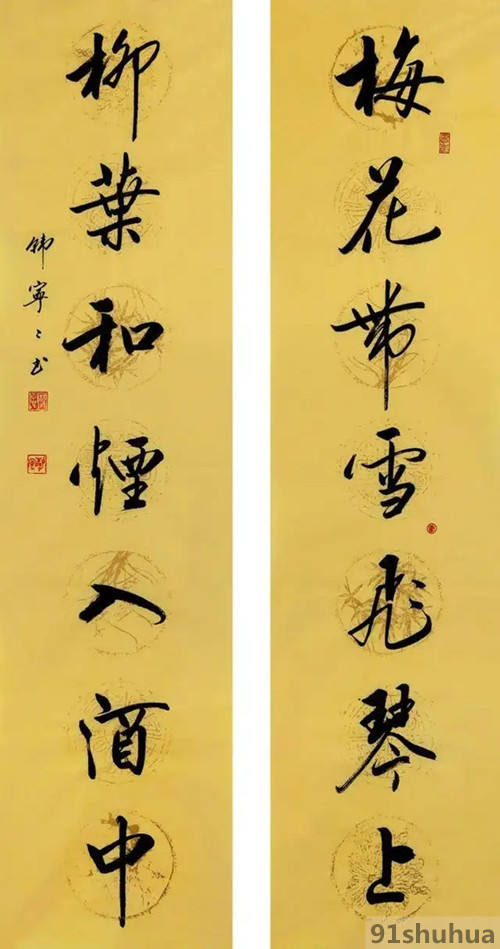 梅花帶雪飛琴上
柳葉和煙入酒中
韓寧〻书
91shuhua